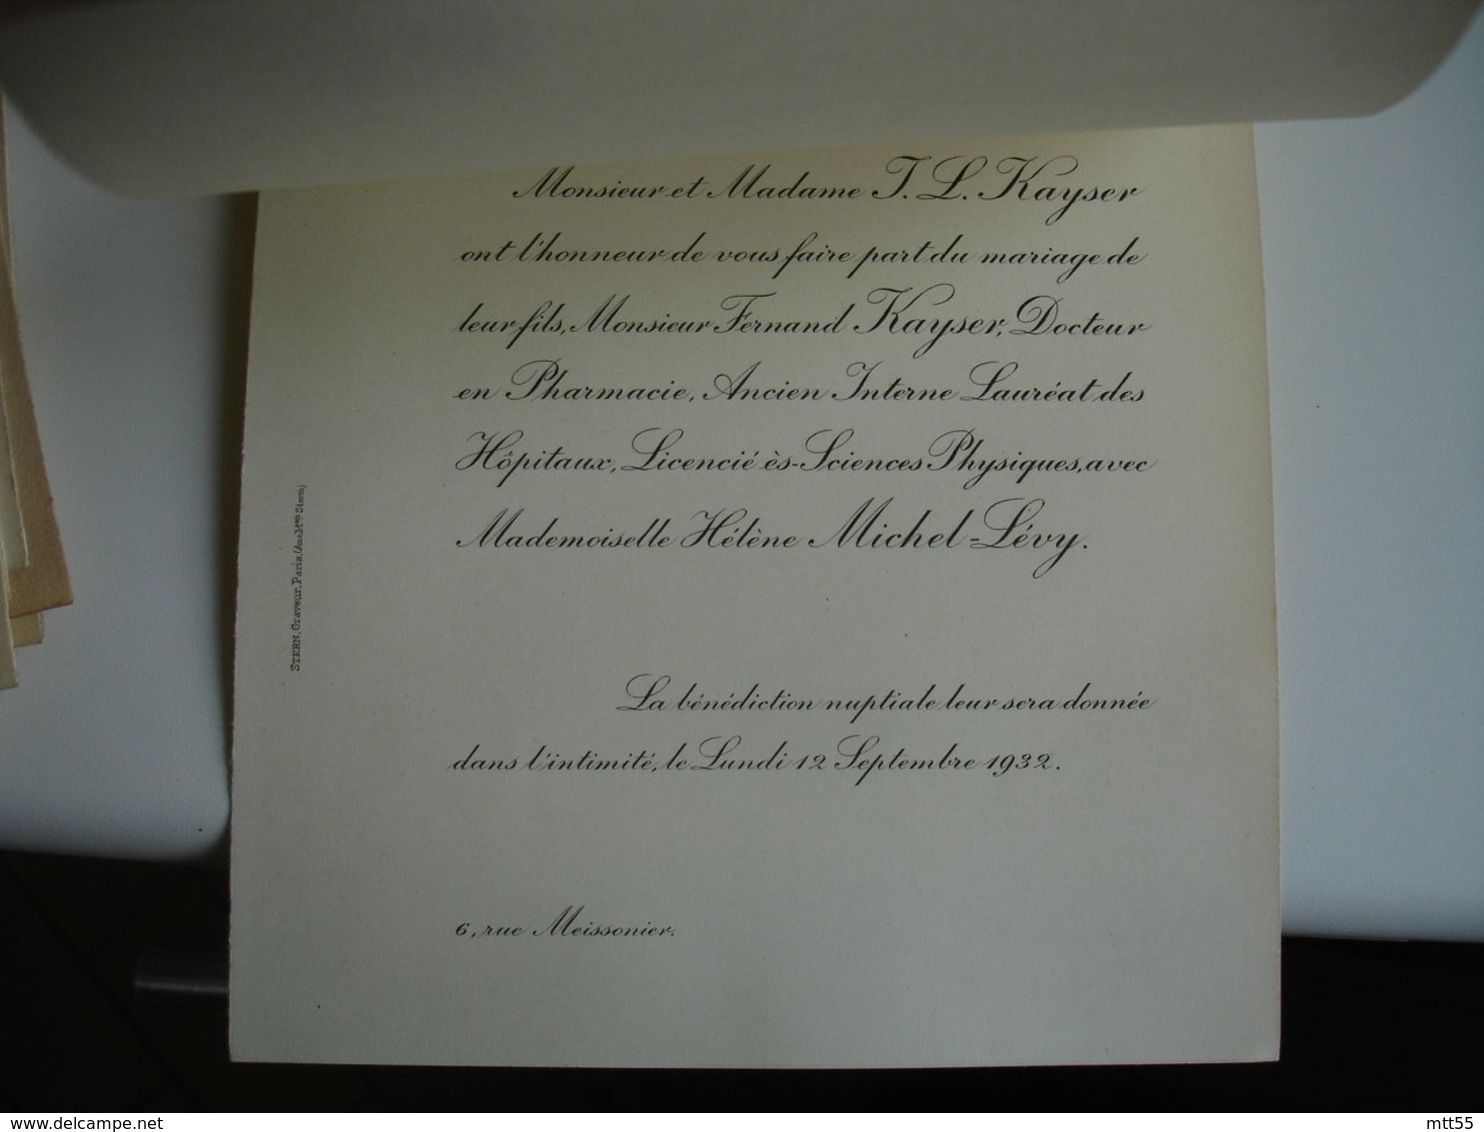 Monsieur et Madame J. L. Kayser
ont l'honneur de vous faire part du mariage de
leur fils, Monsieur Fernand Kayser, Docteur
en Pharmacie, Ancien Interne Lauréat des
Hôpitaux, Licencié ès-Sciences Physiques, avec
Mademoiselle Hélène Michel-Lévy.
La bénédiction nuptiale leur sera donnée
dans l'intimité, le Lundi 12 Septembre 1932.
6, rue Meissonier.
STERN, Graveur, Paris (Anc Mon Stern)
delcampe.net
mtt55